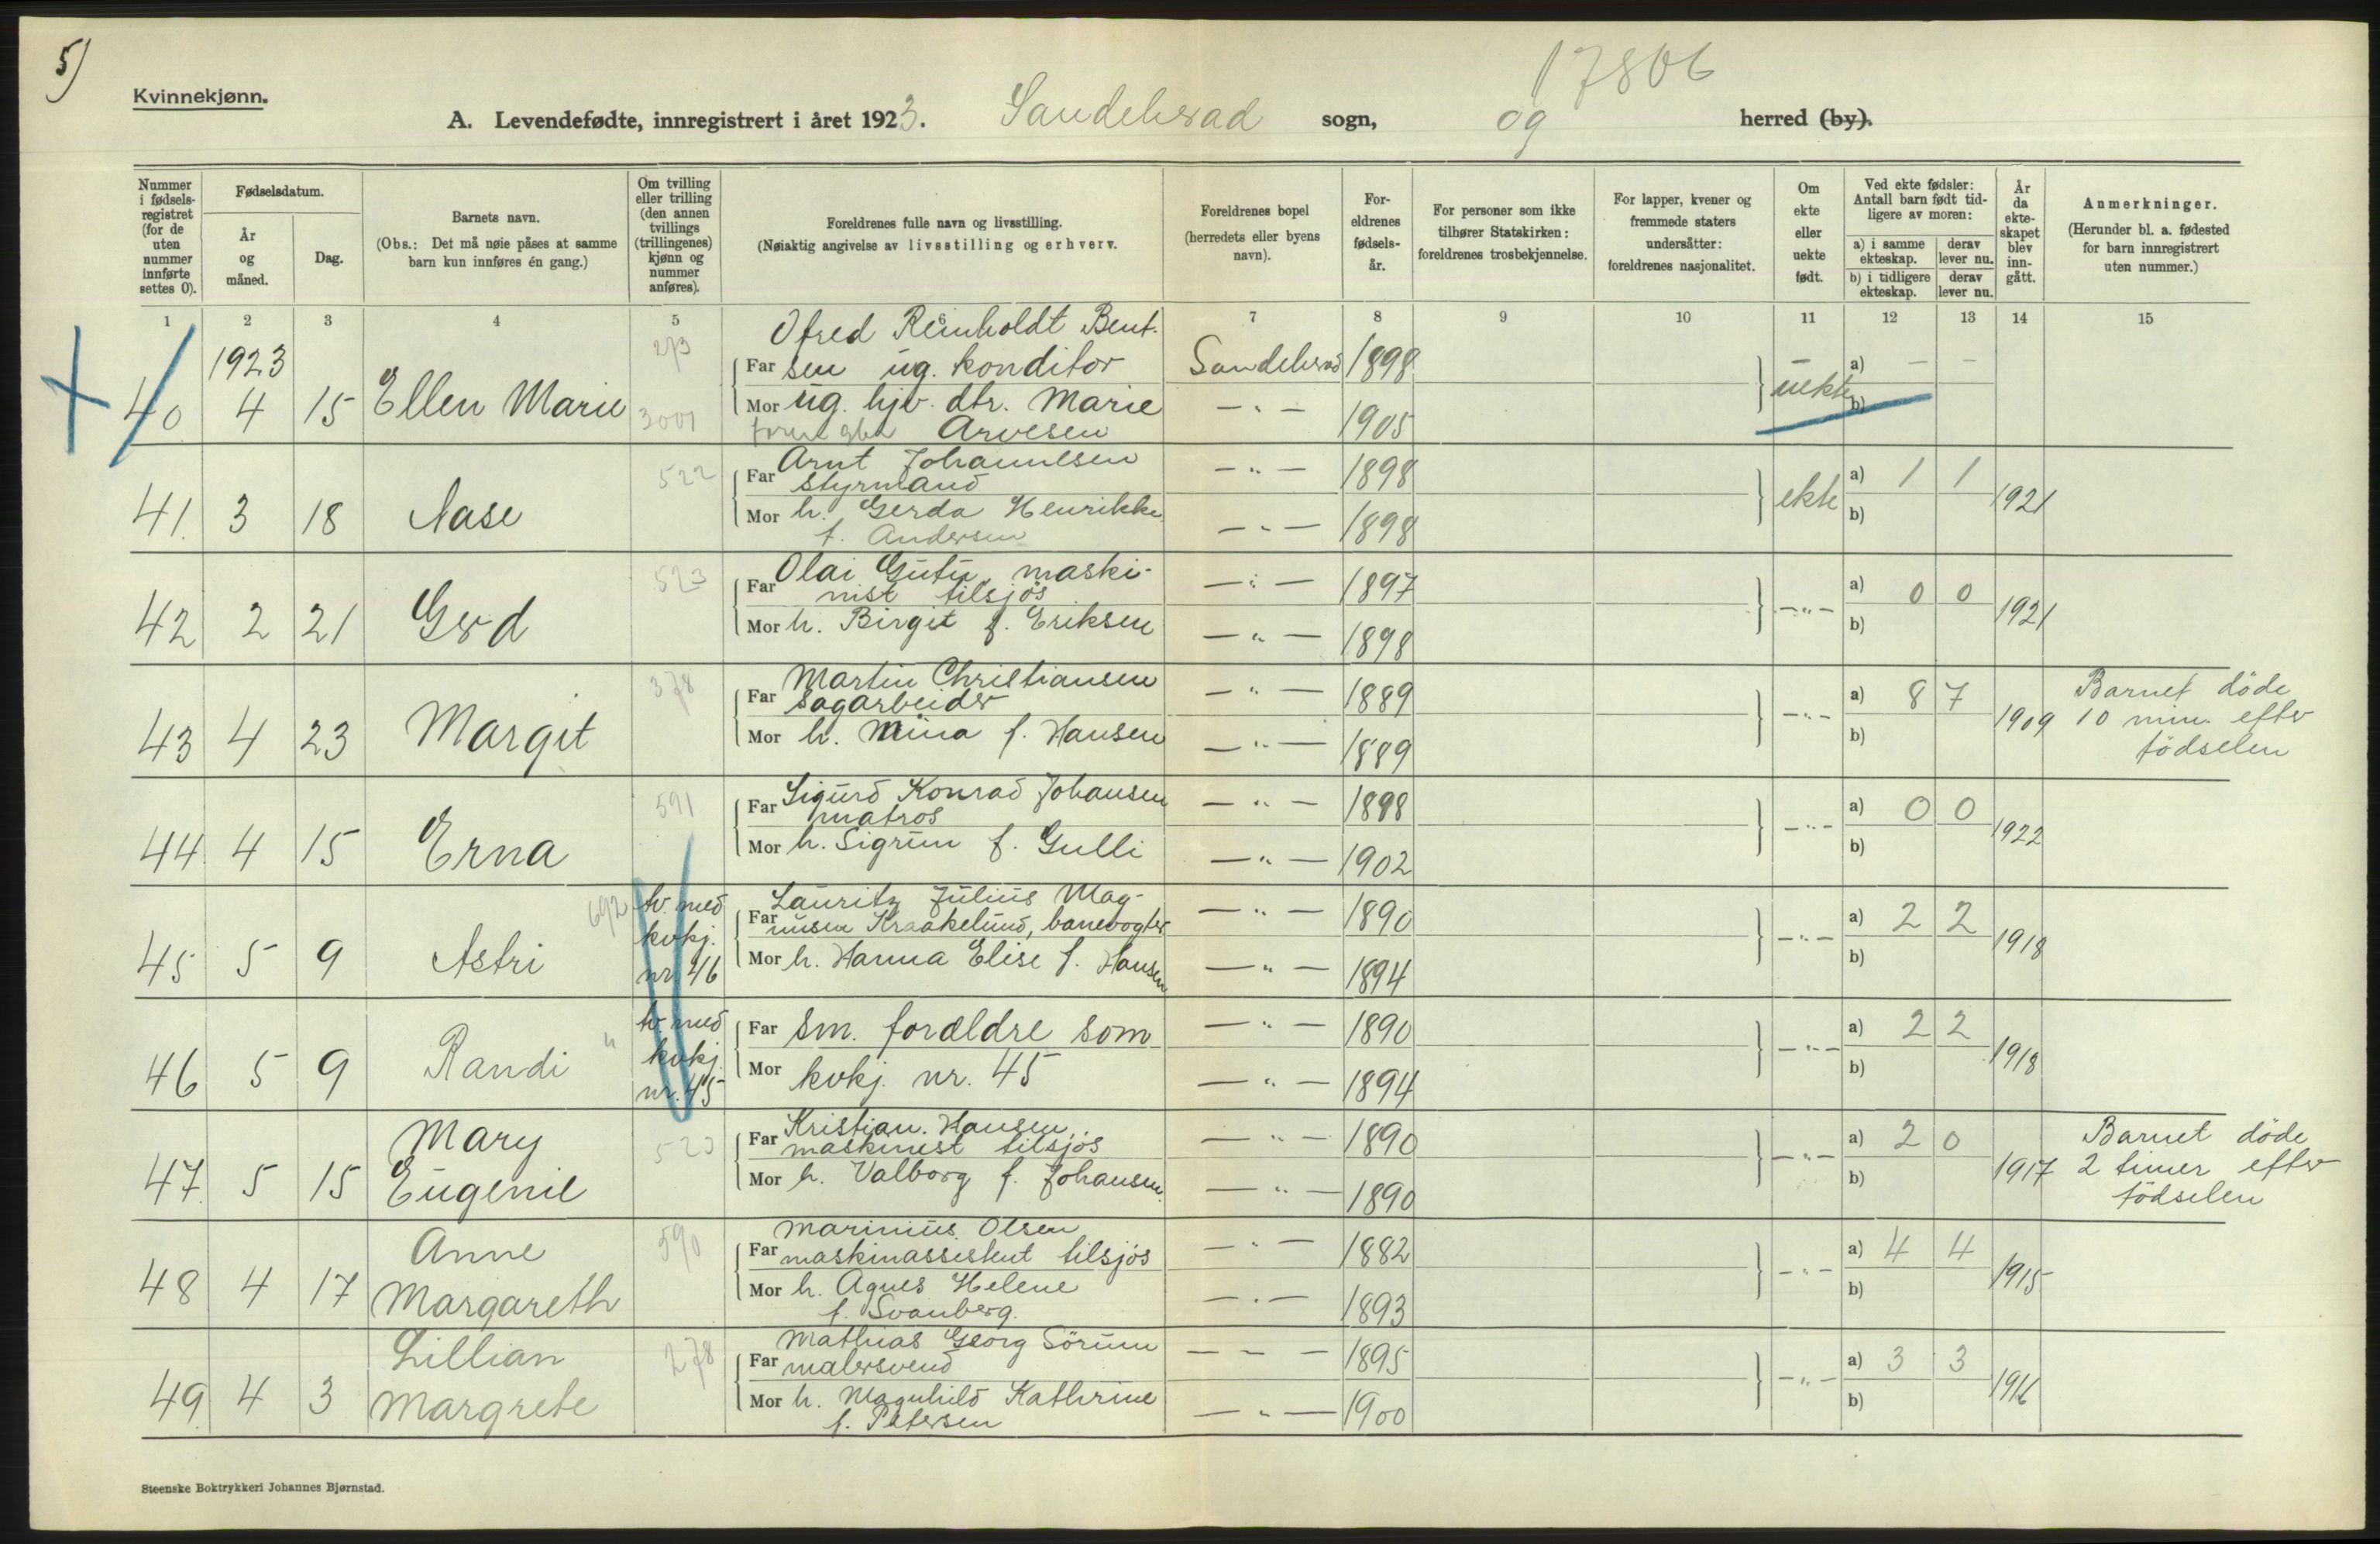 5)
Kvinnekjønn.
17806
A. Levendefødte, innregistrert i året 1923. Sandeherad sogn, og herred (by).
Nummer i fødsels-registret (for de uten nummer innførte settes 0).
Fødselsdatum.
År og måned.
Dag.
Barnets navn.
(Obs.: Det må nøie påses at samme barn kun innføres én gang.)
Om tvilling eller trilling (den annen tvillings (trillingenes) kjønn og nummer anføres).
Foreldrenes fulle navn og livsstilling.
(Nøiaktig angivelse av livsstilling og erhverv.
Foreldrenes bopel (herredets eller byens navn).
For-eldrenes fødsels-år.
For personer som ikke tilhører Statskirken: foreldrenes trosbekjennelse.
For lapper, kvener og fremmede staters undersåtter: foreldrenes nasjonalitet.
Om ekte eller uekte født.
Ved ekte fødsler: Antall barn født tid-ligere av moren:
a) i samme ekteskap.
derav lever nu.
b) i tidligere ekteskap.
derav lever nu.
År da ekte-skapet blev inn-gått.
Anmerkninger.
(Herunder bl. a. fødested for barn innregistrert uten nummer.)
1 2 3 4 5 7 8 9 10 11 12 13 14 15
1923
40 4 15 Ellen Marie
273
3001
Ofred Reinholdt Bent-
Far sen ug. konditor Sandeherad 1898
Mor ug. hjv. dtr. Marie — " — 1905
Arvesen
uekte a) — —
b)
41. 3 18 Aase
522
Arnt Johannesen
Far styrmand — " — 1898
Mor h. Gerda Henrikke — " — 1898
f. Andersen
ekte a) 1 1 1921
b)
42 2 21 Gerd
523
Olai Gutu, maski-
Far nist tilsjøs — " — 1897
Mor h. Birgit f. Eriksen — " — 1898
— " — a) 0 0 1921
b)
43 4 23 Margit
378
Martin Christiansen
Far sagarbeider — " — 1889
Mor h. Mina f. Hansen — " — 1889
— " — a) 8 7 1909
b)
Barnet döde
10 min. efter
födselen
44. 4 15 Erna
591
Sigurd Konrad Johansen
Far matros — " — 1898
Mor h. Sigrun f. Gulli — " — 1902
— " — a) 0 0 1922
b)
45 5 9 Astri
692
tv. med
kvkj.
nr. 46
Lauritz Julius Mag-
Far nusen Kraakelund, banevogter — " — 1890
Mor h. Hanna Elise f. Hansen — " — 1894
— " — a) 2 2 1918
b)
46 5 9 Randi "
tv. med
kvkj.
nr. 45
Far Sm. forældre som — " — 1890
Mor kvkj. nr. 45 — " — 1894
— " — a) 2 2 1918
b)
47. 5 15 Mary
Eugenie
523
Kristian Hansen
Far maskinist tilsjös — " — 1890
Mor h. Valborg f. Johansen — " — 1890
— " — a) 2 0 1917
b)
Barnet döde
2 timer efter
födselen
48 4 17 Anne
Margareth
590
Marinius Olsen
Far maskinassistent tilsjös — " — 1882
Mor h. Agnes Helene — " — 1893
f. Svanberg.
— " — a) 4 4 1915
b)
49. 4 3 Lillian
Margrete
278
Mathias Georg Sörum
Far malersvend — — — 1895
Mor h. Magnhild Kathrine — " — 1900
f. Petersen
— " — a) 3 3 1916
b)
Steenske Boktrykkeri Johannes Bjørnstad.